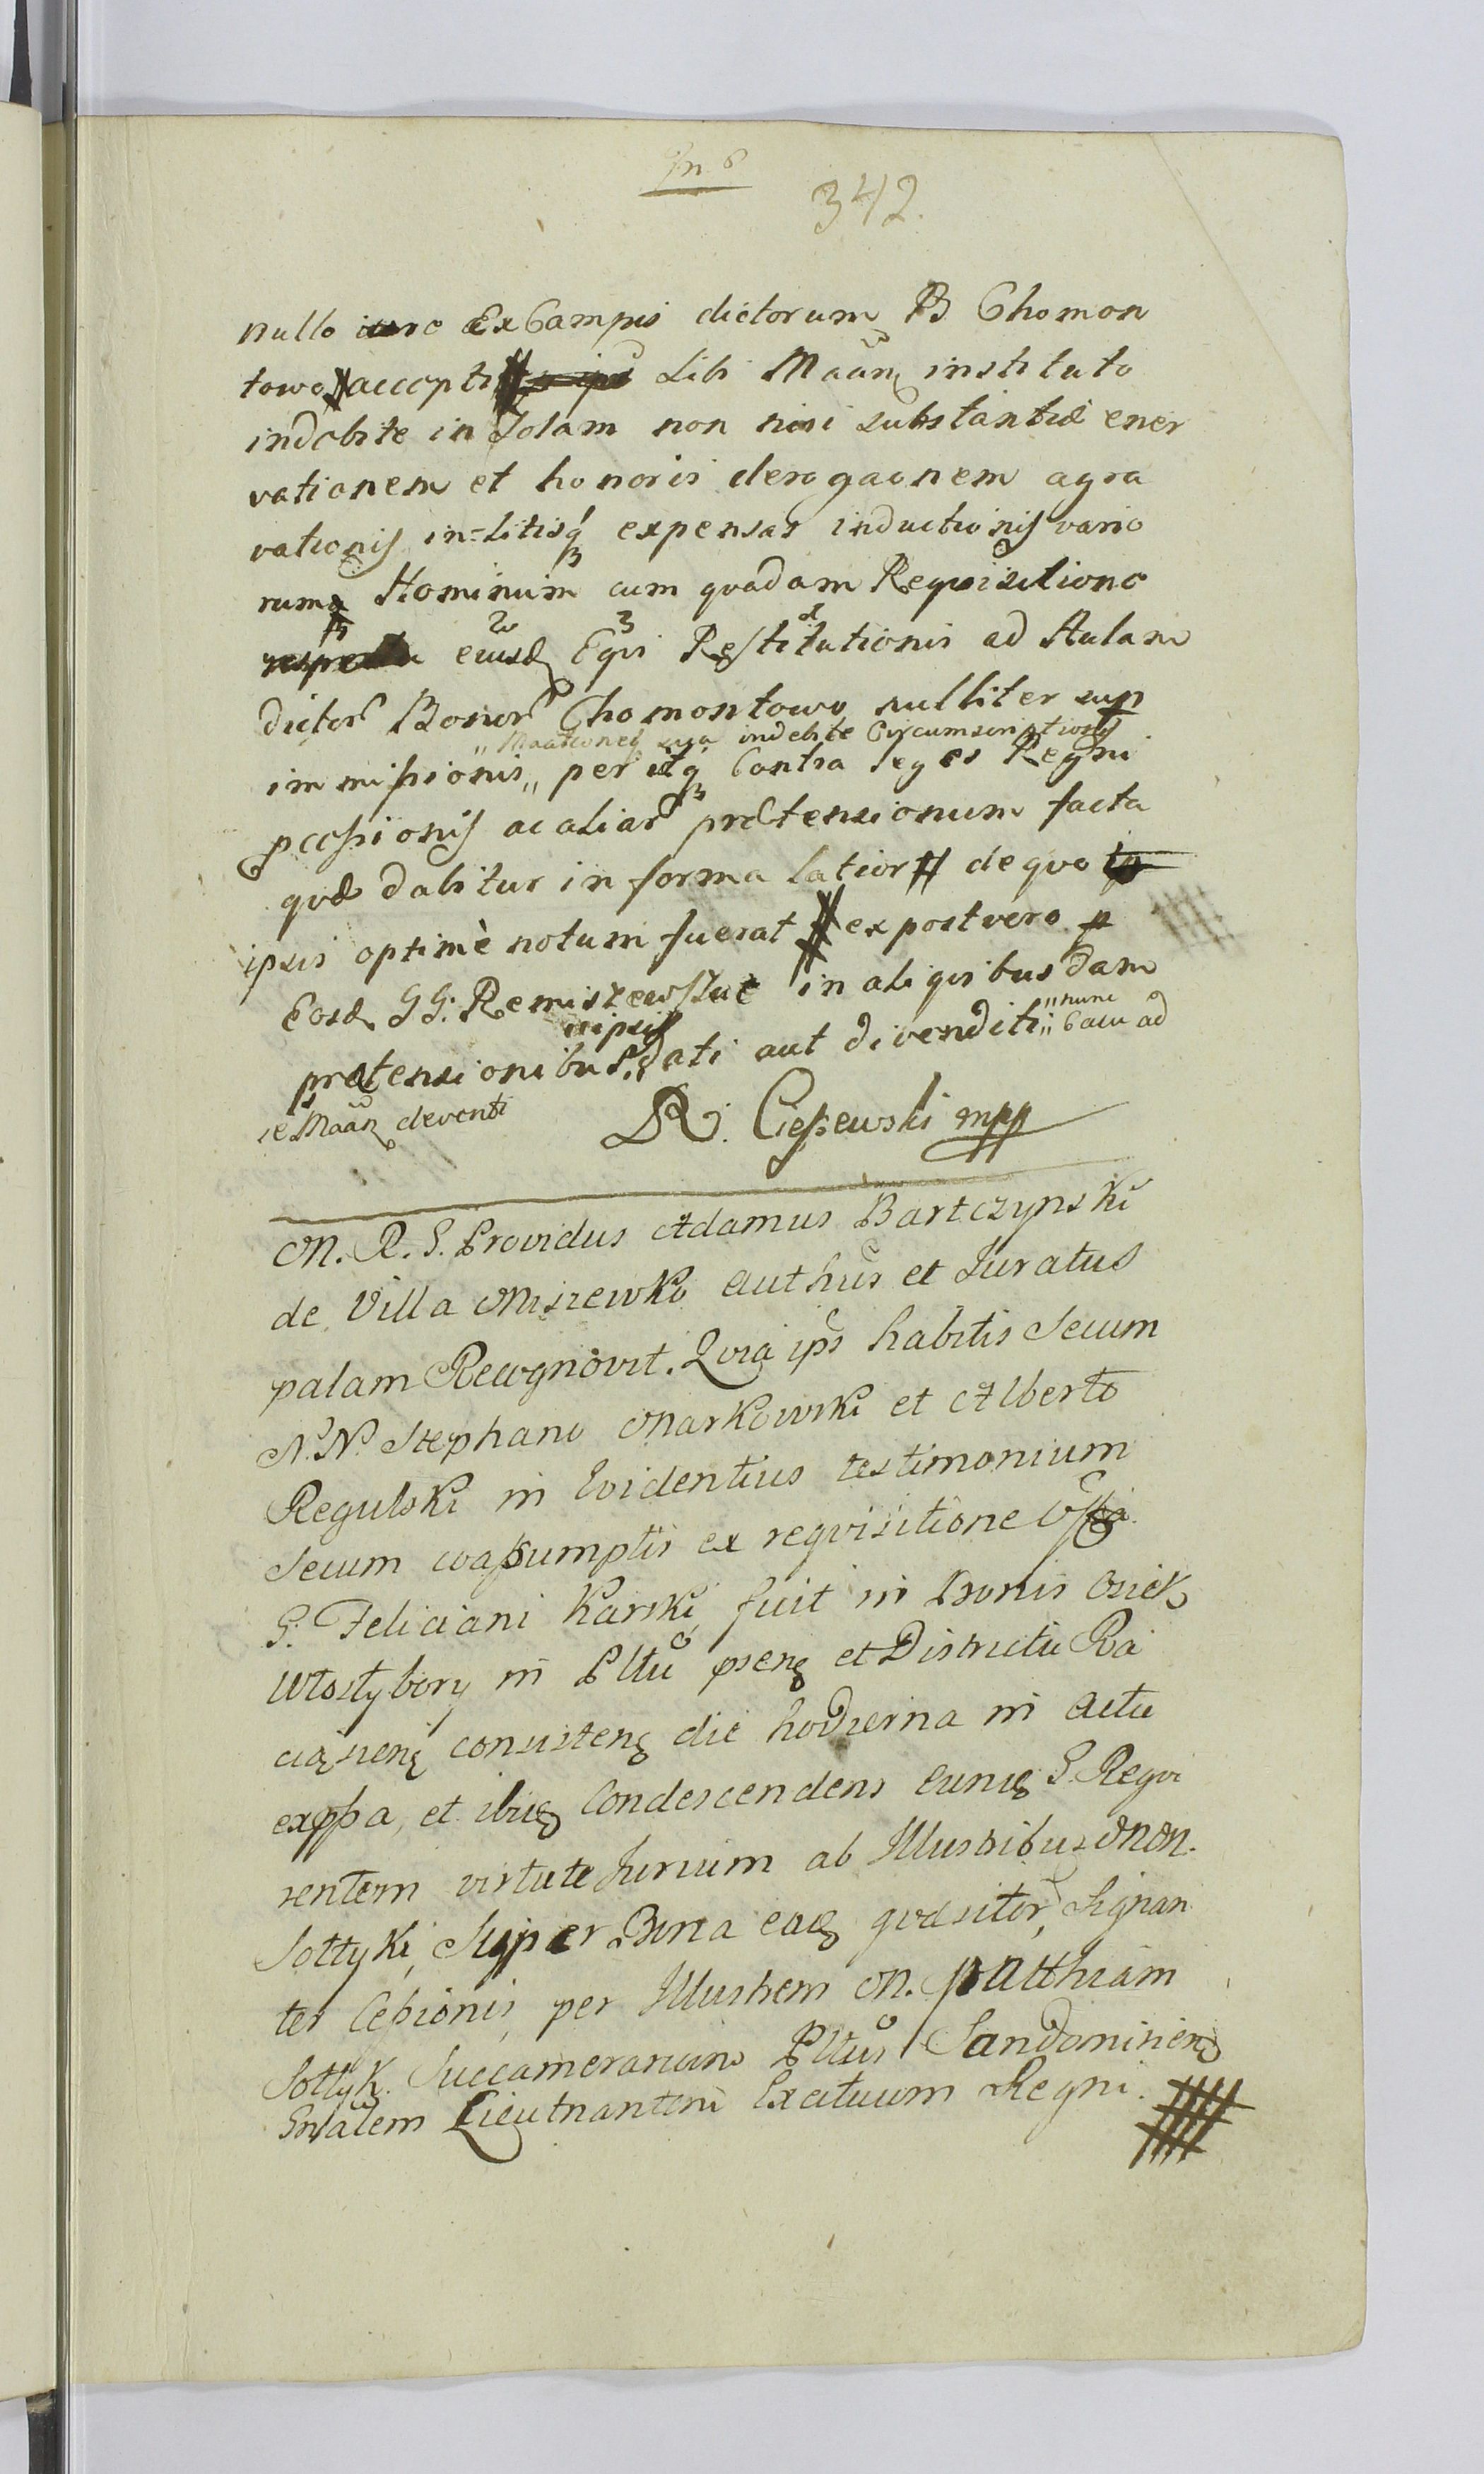 342.
nullo iure Ex Campis dictorum B Chomon
towo accepti sibi Maãm instituto
indebite in solam non nisi substantiæ ener
vationem et honoris derogaonem agra
vationis in-litisq expensas inductionis vario
rumq Hominum cum quadam Requisitione
eiusd Eqvi Restitutionis ad Aulam
dictor Bonor Chomontowo nulliter sup
indebite Circumscriptionis
immissionis,, per itq Contra leges Regni
pcessionis ac aliar prætensionum facta
quæ dabitur in forma latiori de quo
ipsis optimè notum fuerat ex post vero p
Eosd GG. Remiszewskie in aliqvibusdam
ripsis nunc
prætensionibus dati aut divenditi Casu ad
se Maãn deventi
R. Ciessewski mpp
M. R. S. Providus Adamus Bartczynski
de Villa Miszewko authus et Juratus
palam Recognovit. Qvia ips habitis secum
N.N. Stephano Markowski et Alberto
Regulski in Evidentius testimonium
secum coassumptis ex reqvisitione
G. Feliciani Karski fuit in Bonis Osiek
Wtostybory in Pltu pseng et Districtu Ra
ciąseng consisteng die hodierna in actu
exppa, et ibiq Condescendens eunde G. Reqvi
rentem virtute Jurium ab Illustribus MM.
Sottyki, super Bona eade qvæsitor, signan
ter Cessionis, per Illustrem M. Matthiam
Sottyk. Succamerarium Pltus Sandomiriens
Gnãlem Lieutnantem Exercituum Regni.